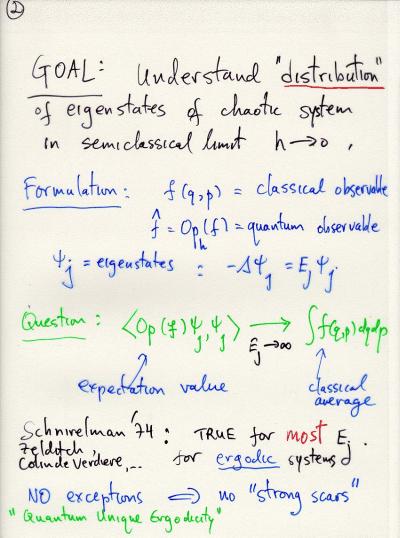 ②
GOAL: Understand "distribution"
of eigenstates of chaotic system
in semiclassical limit h→0,
Formulation: f(q,p) = classical observable
f̂ = Op_h(f) = quantum observable
Ψ_j = eigenstates : -ΔΨ_j = E_j Ψ_j.
Question: <Op(f)Ψ_j, Ψ_j> → ∫f(q,p)dqdp
E_j→∞
expectation value
classical average
Schnirelman '74: TRUE for most E_j.
Zelditch,
Colin de Verdiere,... for ergodic systems
NO exceptions ⇒ no "strong scars"
"Quantum Unique Ergodicity"